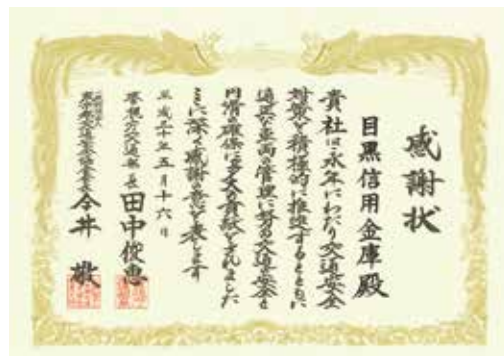 感謝状
目黒信用金庫殿
貴社は永年にわたり交通安全
対策を積極的に推進するとともに
適正な車両の管理に努め交通の安全と
円滑の確保に多大な貢献をされました
ここに深く感謝の意を表します
平成二十 年五月十六日
警視庁交通部長 田中俊恵
東京 交通安全協会会長 今井 敬